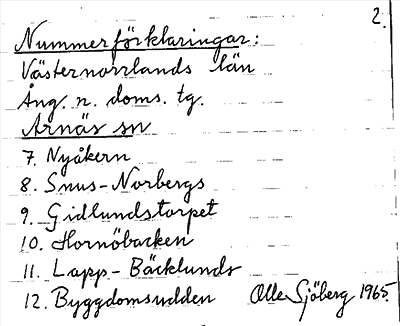 2.
Nummerförklaringar:
Västernorrlands län
Ång. n. doms. tg.
Arnäs sn
7. Nyåkern
8. Snus-Norbergs
9. Gidlundstorpet
10. Hornöbacken
11. Lapp-Bäcklunds
12. Byggdomsudden Olle Sjöberg 1965.